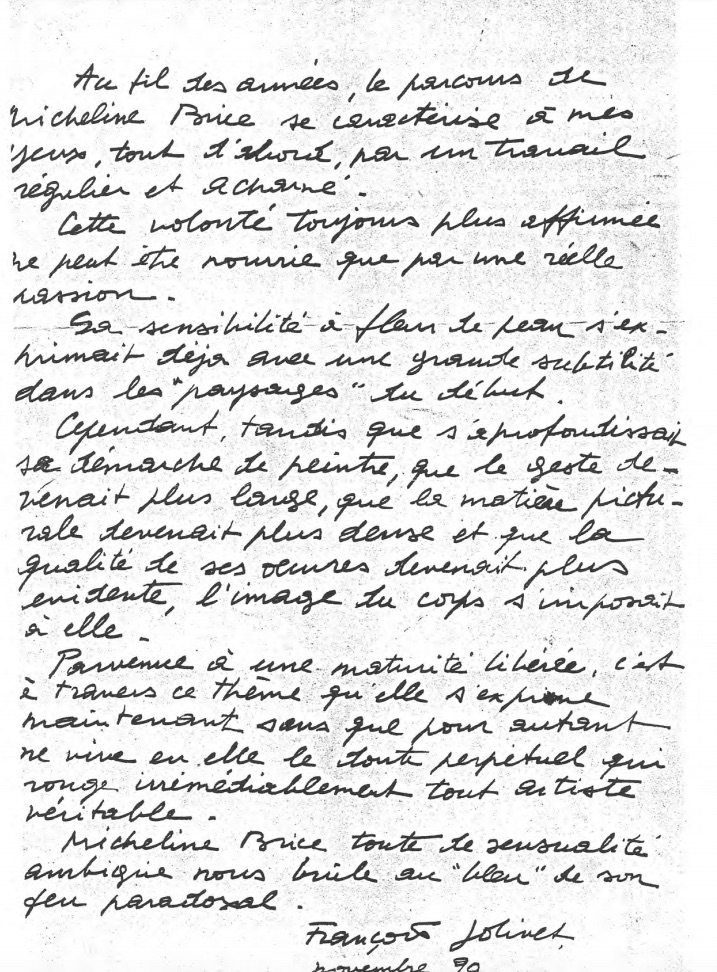 Au fil des années, le parcours de
Micheline Brice se caractérise à mes
yeux, tout d'abord, par un travail
régulier et acharné.
Cette volonté toujours plus affirmée
ne peut être nourrie que par une réelle
passion.
Sa sensibilité à fleur de peau s'ex-
primait déjà avec une grande subtilité
dans les "paysages" du début.
Cependant, tandis que s'aprofondissait
sa démarche de peintre, que le geste de-
venait plus large, que la matière pictu-
rale devenait plus dense et que la
qualité de ses oeuvres devenait plus
evidente, l'image du corps s'imposait
à elle.
Parvenue à une maturité libérée, c'est
à travers ce thème qu'elle s'exprime
maintenant sans que pour autant
ne vive en elle le doute perpétuel qui
ronge irrémédiablement tout artiste
véritable.
Micheline Brice toute de sensualité
ambigüe nous brûle au "bleu" de son
feu paradoxal.
François Jolivet
novembre 90